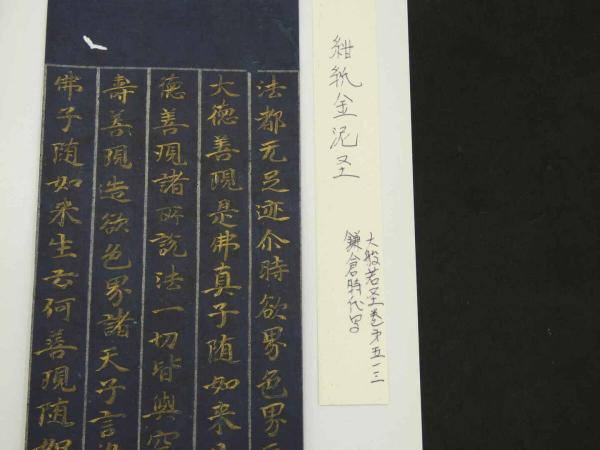 紺紙金泥圣
大般若圣巻第五一三
鎌倉時代写
法都无足迹尒時欲界色界
大德善現是佛真子随如来
德善現諸所説法一切皆與空
壽善現造欲色界諸天子言
佛子随如来生云何善現随